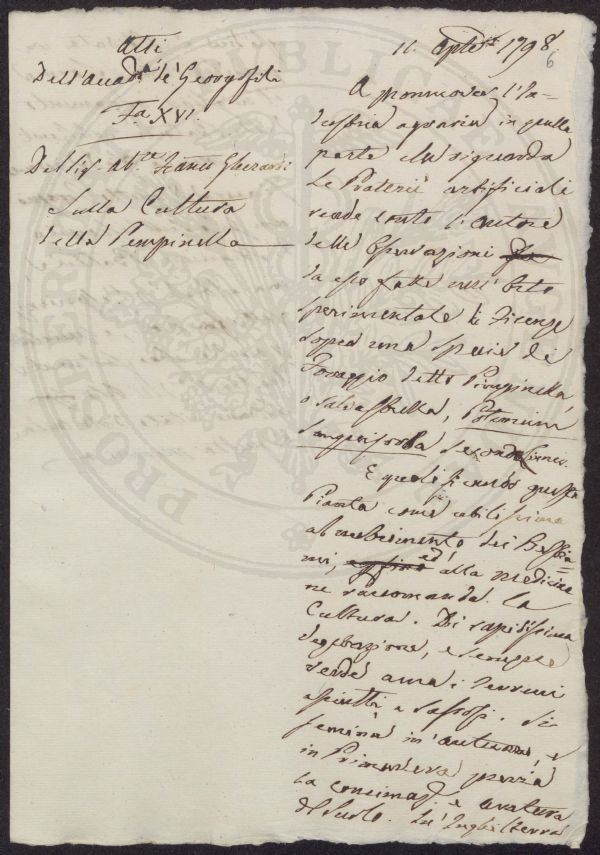 Atti
Dell'Accad.a de' Georgofili
F.a XVI.
Del Sig. Ab.te
Sulla Cultura
della Pimpinella
11. 1798.
6
A promuovere l'In=
dustria agraria in quella
parte che riguarda
Le Praterie artificiali
rende conto l'autore
delle Osservazioni
da esso fatte nell' Orto
sperimentale di Firenze
sopra una specie di
Foraggio detto Pimpinella,
o salvastrella, Poterium
Sanguisorba secondo Linneo.
E questa
Pianta come utilissima
al nutrimento dei Bestia=
mi, ed alla medicina
ne raccomanda la
Cultura. Di rapidissima
vegetazione, e sempre
verde ama i terreni
asciutti e sassosi. Si
semina in autunno, e
in Primavera previa
La concimaz.e e aratura
del Suolo. In Inghilterra